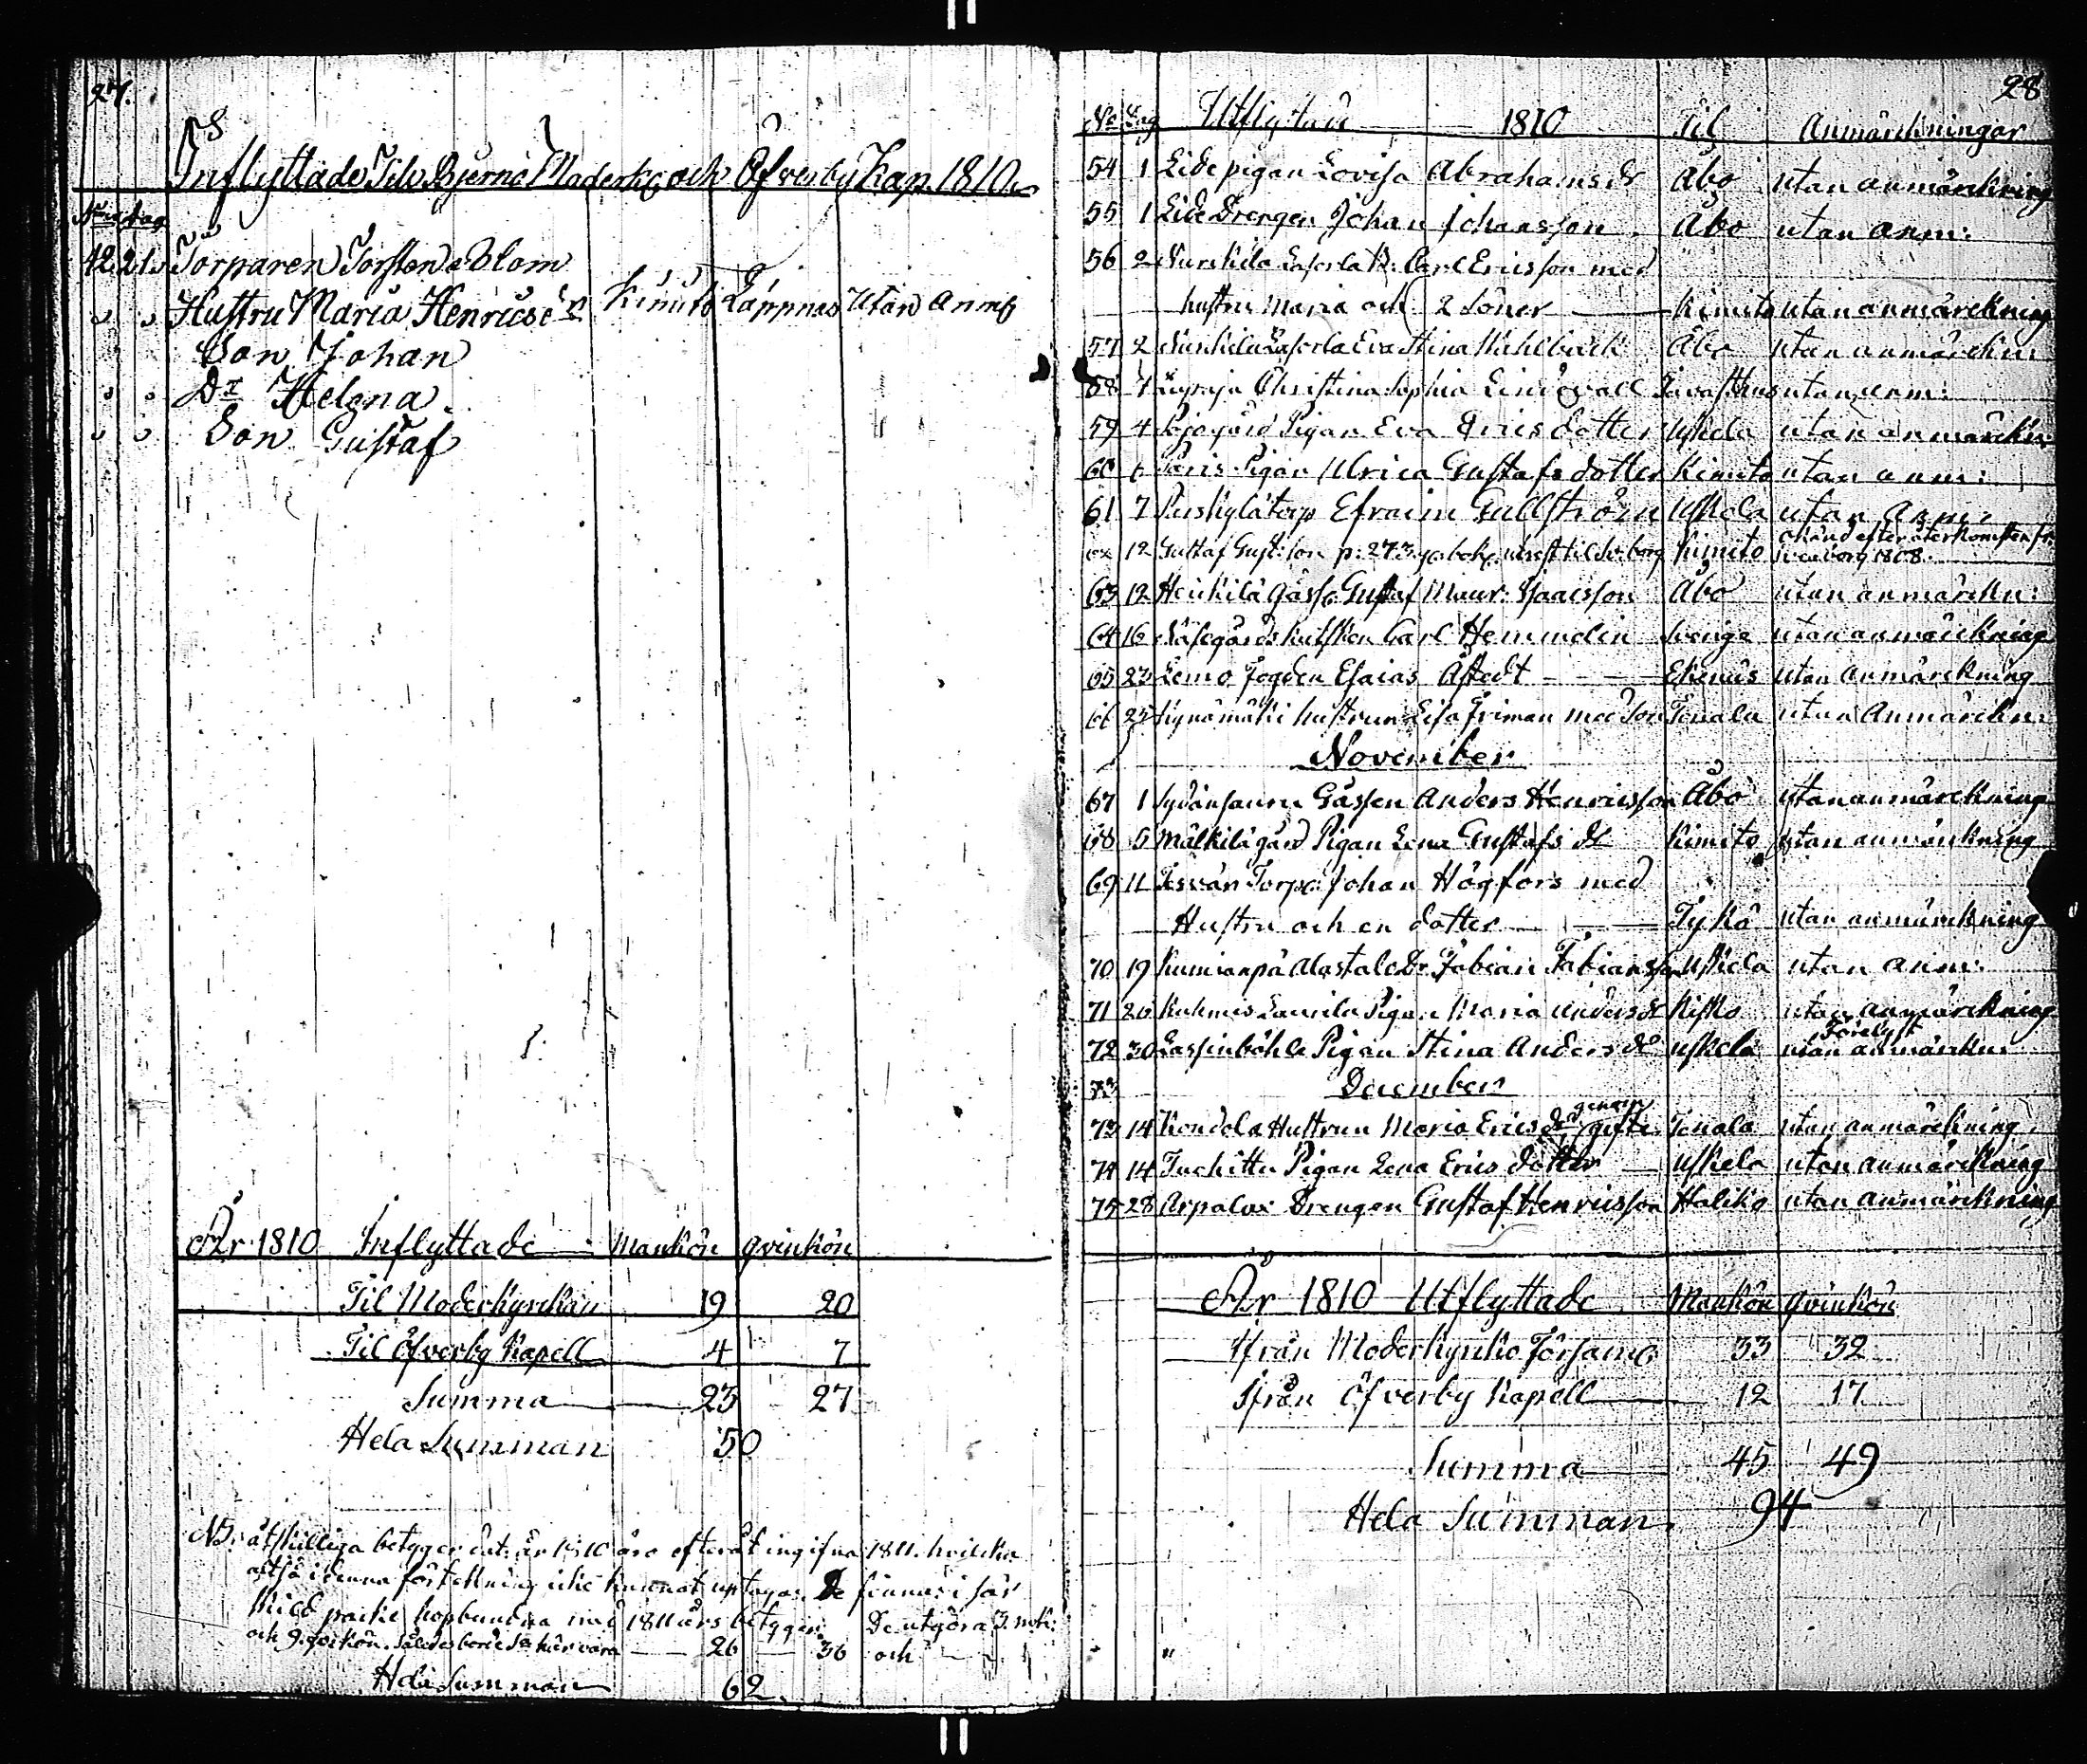 27.
Inflyttade Til Bjerno Moderk: och Öfverby Kap. 1810.
No dag
42 21 Torparen Torsten Blom
Hustru Maria Henricsdr Kimito Lappnäs Utan Anm:
Son Johan
Dr Helena
Son Gustaf
År 1810 Inflyttade Mankön qvinkön
Til Moderkyrckan 19 20
Til Öfverby Kapell 4 7
Summa 23 27
Hela Summan 50
NB. åtskilliga betyg dat: år 1810 äro efteråt ingifna 1811. hvilcka
altså i denna förtekning icke kunnat uptagas. De finnas i sär
skild packe hopbundna med 1811 års betyger. De utgöra 3. mk:
och 9. qvinkön. således borde här vara 26 36 och
Hela Summan 62.
28
No Dag Utflyttade 1810 Til Anmärckningar
54 1 Eide pigan Lovisa Abrahams dr Åbo utan anmärckning
55 1 Eide Drengen Johan Johansson Åbo utan anm:
56 2 Carl Ericsson med
hustru Maria och 2 söner Kimito utan anmärckning
57 2 Eva Stina Åbo utan anmärckn:
58 4 Christina Sophia utan anm:
59 4 Pigan Eva Ericsdotter Uskela utan anmärckn:
60 6 Pigan Ulrica Gustafsdotter Kimito utan anm:
61 7 Efraim Gullström Uskela utan Anm:
12 Gustaf Gust:son p: 273 Kimito okänd efter återkomsten fr:
1808.
63 12 Heickilä Gåsse Gustaf Maur: Isaacsson Åbo utan anmärckn:
64 16 Carl Hemmelin Sverige utan anmärckning
65 23 Lemo Fogden Esaias Åstedt Ekenäs utan anmärckning
66 25 hustrun Lisa Friman med son Tenala utan Anmärckn:
November
67 1 Gåssen Anders Henricsson Åbo utan anmärckning
68 5 Mälkilä gård Pigan Lena Gustafs dr Kimito utan anmärckning
69 11 Torp: Johan Högfors med
Hustru och en dotter Tykö utan anmärckning
70 19 Alastalo Dr. Fabian Fabiansson Uskela utan anm:
71 26 Pigan Maria Andersdr Kisko utan anmärckning
72 30 Lassinböhle Pigan Stina Anders dr Uskela utan anmärckn:
73
December
73 14 Hustrun Maria Erics dr genom gifte Tenala utan anmärckning
74 14 Pigan Lena Erics dotter Uskela utan anmärckning
75 28 Arpalax Drengen Gustaf Henricsson Haliko utan anmärckning
År 1810 Utflyttade Mankön qvinkön
Ifrån Moderkyrcko Församl: 33 32
Ifrån Öfverby Kapell 12 17
Summa 45 49
Hela Summan 94